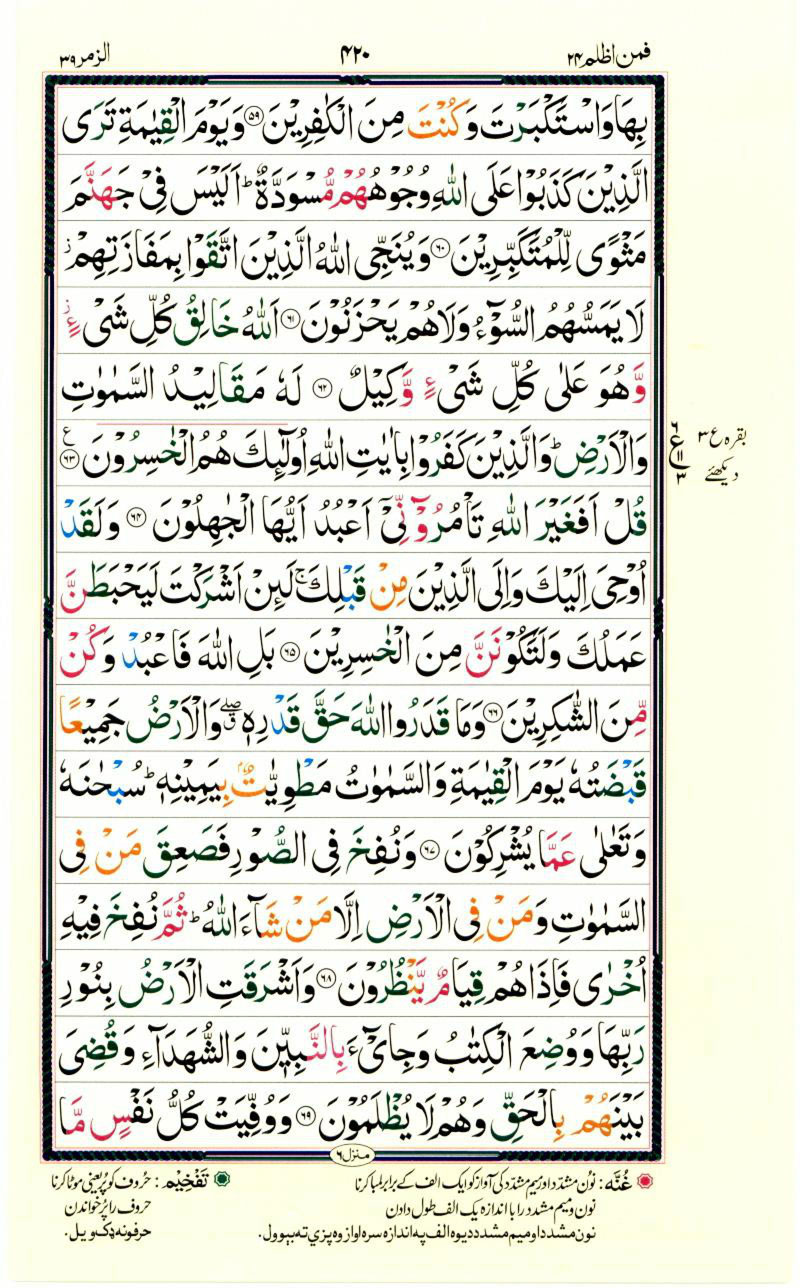 فمن اظلم ۲۴
۴۲۰
الزمر ۳۹
بِهَا وَاسْتَكْبَرْتَ وَكُنْتَ مِنَ الْكٰفِرِيْنَ ۝۵۹ وَيَوْمَ الْقِيٰمَةِ تَرَى
الَّذِيْنَ كَذَبُوْا عَلَى اللّٰهِ وُجُوْهُهُمْ مُّسْوَدَّةٌ ؕ اَلَيْسَ فِيْ جَهَنَّمَ
مَثْوًى لِّلْمُتَكَبِّرِيْنَ ۝۶۰ وَيُنَجِّي اللّٰهُ الَّذِيْنَ اتَّقَوْا بِمَفَازَتِهِمْ ز
لَا يَمَسُّهُمُ السُّوْٓءُ وَلَا هُمْ يَحْزَنُوْنَ ۝۶۱ اَللّٰهُ خَالِقُ كُلِّ شَيْءٍ ز
وَّهُوَ عَلٰى كُلِّ شَيْءٍ وَّكِيْلٌ ۝۶۲ لَهٗ مَقَالِيْدُ السَّمٰوٰتِ
وَالْاَرْضِ ؕ وَالَّذِيْنَ كَفَرُوْا بِاٰيٰتِ اللّٰهِ اُولٰٓئِكَ هُمُ الْخٰسِرُوْنَ ۝۶۳ ع
قُلْ اَفَغَيْرَ اللّٰهِ تَاْمُرُوْٓنِّيْٓ اَعْبُدُ اَيُّهَا الْجٰهِلُوْنَ ۝۶۴ وَلَقَدْ
اُوْحِيَ اِلَيْكَ وَاِلَى الَّذِيْنَ مِنْ قَبْلِكَ ۚ لَئِنْ اَشْرَكْتَ لَيَحْبَطَنَّ
عَمَلُكَ وَلَتَكُوْنَنَّ مِنَ الْخٰسِرِيْنَ ۝۶۵ بَلِ اللّٰهَ فَاعْبُدْ وَكُنْ
مِّنَ الشّٰكِرِيْنَ ۝۶۶ وَمَا قَدَرُوا اللّٰهَ حَقَّ قَدْرِهٖ ۖق وَالْاَرْضُ جَمِيْعًا
قَبْضَتُهٗ يَوْمَ الْقِيٰمَةِ وَالسَّمٰوٰتُ مَطْوِيّٰتٌۢ بِيَمِيْنِهٖ ؕ سُبْحٰنَهٗ
وَتَعٰلٰى عَمَّا يُشْرِكُوْنَ ۝۶۷ وَنُفِخَ فِي الصُّوْرِ فَصَعِقَ مَنْ فِي
السَّمٰوٰتِ وَمَنْ فِي الْاَرْضِ اِلَّا مَنْ شَآءَ اللّٰهُ ؕ ثُمَّ نُفِخَ فِيْهِ
اُخْرٰى فَاِذَا هُمْ قِيَامٌ يَّنْظُرُوْنَ ۝۶۸ وَاَشْرَقَتِ الْاَرْضُ بِنُوْرِ
رَبِّهَا وَوُضِعَ الْكِتٰبُ وَجِايْٓءَ بِالنَّبِيّٖنَ وَالشُّهَدَآءِ وَقُضِيَ
بَيْنَهُمْ بِالْحَقِّ وَهُمْ لَا يُظْلَمُوْنَ ۝۶۹ وَوُفِّيَتْ كُلُّ نَفْسٍ مَّا
بقره ع ۳
دیکھئے
۶
ع
۱۱
۳
منزل ۶
غُنَّه : نُون مشدّد اور میم مشدّد کی آواز کو ایک الف کے برابر لمبا کرنا
نون و میم مشدد را با اندازہ یک الف طول دادن
نون مشدد او میم مشدد دیوه الف په اندازه سره اواز وه پزي ته بېوول.
تَفْخِیْم : حُروف کو پُر یعنی موٹا کرنا
حروف را پُر خواندن
حرفونه ډک ویل.